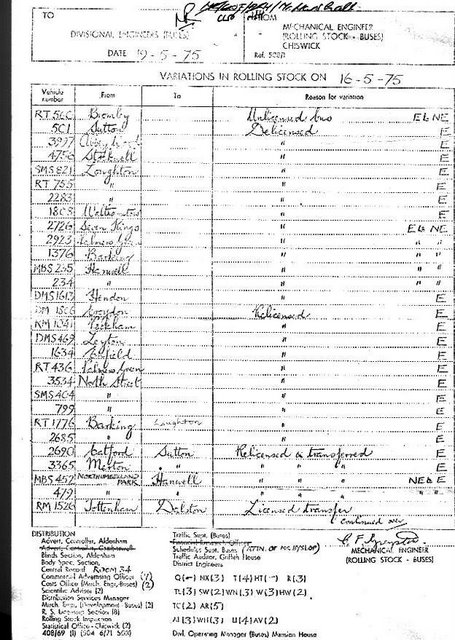 TO
FROM
DIVISIONAL ENGINEERS (BUSES)
MECHANICAL ENGINEER
(ROLLING STOCK - BUSES)
CHISWICK
DATE 19-5-75
Ref. 508/1
VARIATIONS IN ROLLING STOCK ON 16-5-75
Vehicle number From To Reason for variation
RT 560 Bromley Unlicensed bus E & NE
501 Sutton Delicensed E
3977 Abbey Wood " E
4756 Stockwell " E
SMS 821 Loughton " E
RT 755 " " E
2283 " " E
1803 Walthamstow " E
2726 Seven Kings " E & NE
2923 Palmers Green " " "
1376 Barking " " "
MBS 235 Hanwell " E
234 " " E
DMS 1613 Hendon " E
DM 1806 Croydon Relicensed E
RM 1041 Peckham " E
DMS 469 Leyton " E
1634 Enfield " E
RT 436 Palmers Green " E
3534 North Street " E
SMS 404 " " E
799 " " E
RT 1776 Barking Loughton " E
2685 " " E
2690 Catford Sutton Relicensed & transferred E
3365 Merton " " " " E
MBS 452 NORTHUMBERLAND PARK Hanwell " " " NE & E
479 " " " " " E
RM 1526 Tottenham Dalston Licensed transfer E
Continued over
DISTRIBUTION
Advert. Controller, Aldenham
Blinds Section, Aldenham
Body Spec. Section,
Central Record ROOM 34
Commercial Advertising Officer (7)
Costs Office (Mech. Engr. Buses) (2)
Scientific Adviser (2)
Distribution Services Manager
Mech. Engr. (Development - Buses) (2)
R. S. Licensing Section (8)
Rolling Stock Inspection
Statistical Office - Chiswick (2)
408/69 (8) (504 6/71 500)
Traffic Supt. (Buses)
Schedules Supt. Buses (ATTN. OF MR. HYSLOP)
Traffic Auditor, Griffith House
District Engineers
MECHANICAL ENGINEER
(ROLLING STOCK - BUSES)
Q(-) NX(3) T(4) HT(-) R(3)
TL(3) SW(2) WN(3) W(3) HW(2)
TC(2) AR(5)
AL(3) WH(3) U(4) AV(2)
Divl. Operating Manager (Buses) Mansion House